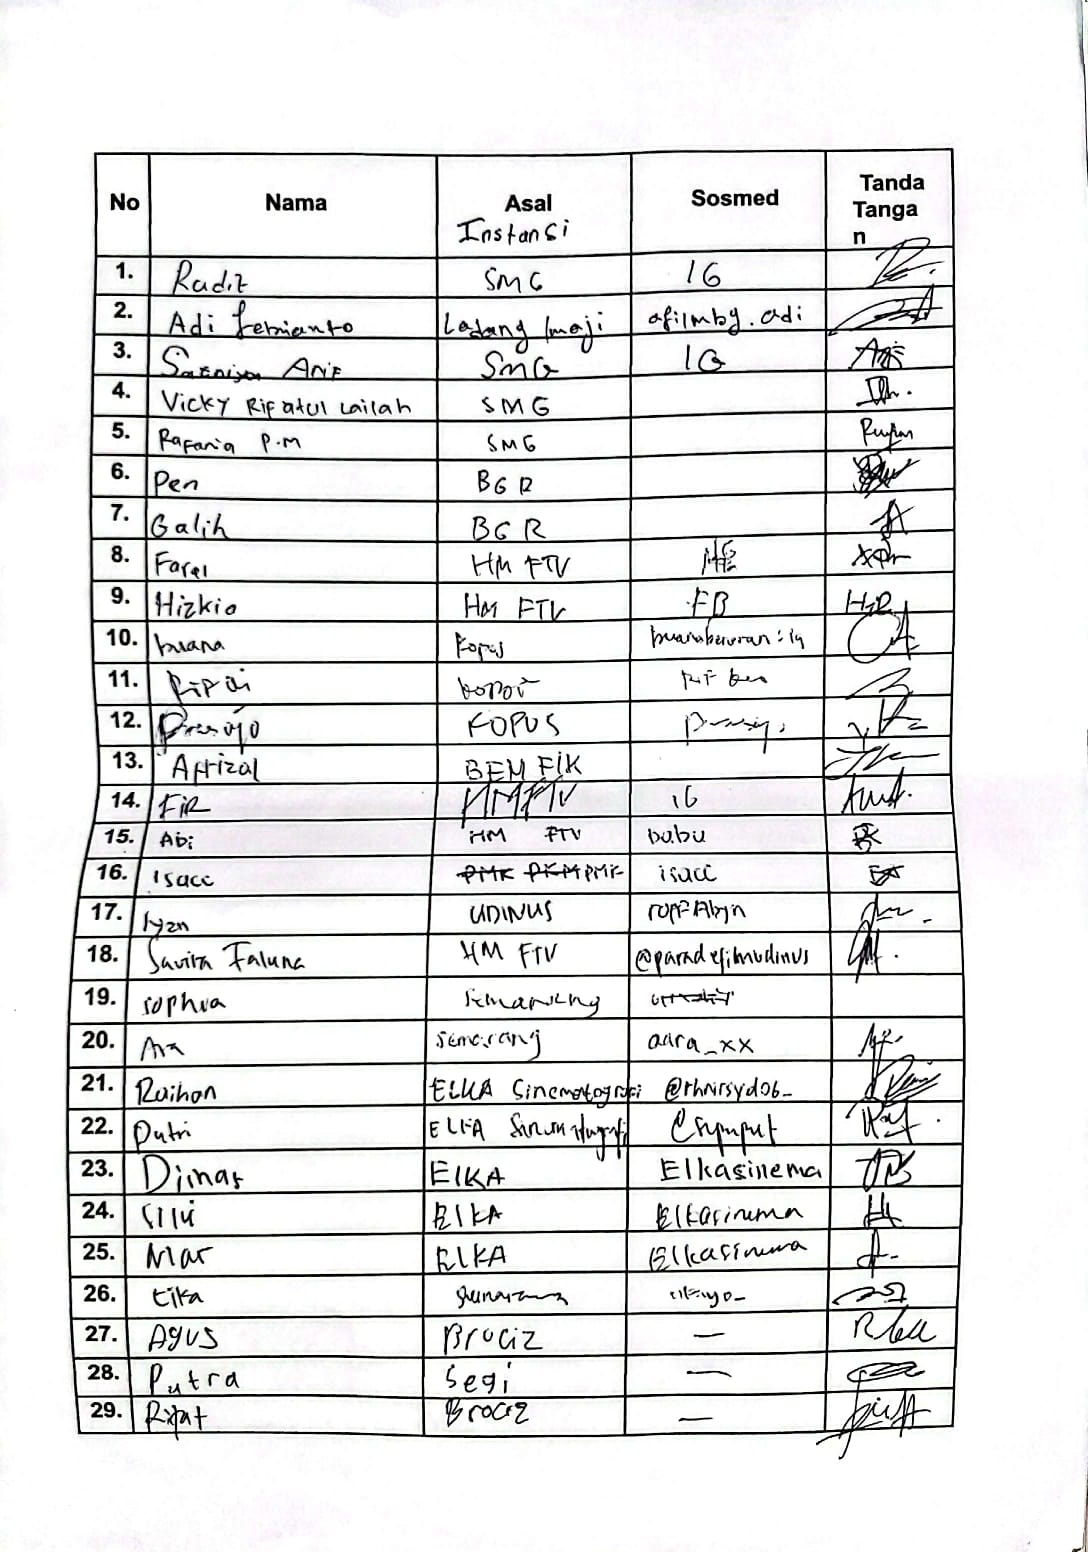 No Nama Asal Instansi Sosmed Tanda Tangan
1. Radit SMG IG
2. Adi Febrianto Ladang Imaji afilmby.adi
3. Arif SMG IG
4. Vicky Rifatul Lailah SMG
5. Rafania P.M SMG
6. Pen BGR
7. Galih BGR
8. Farel HM FTV
9. Hizkia HM FTV FB
10. buana kopus
11. Ripai
12. KOPUS
13. Afrizal BEM FIK
14. FIR HMFTV IG
15. Abi HM FTV babu
16. Isacc PMK PKM PMK isacc
17. Iyan UDINUS
18. Savira Faluna HM FTV @paradefilmudinus
19. sophia Semarang
20. Ara Semarang aara_xx
21. Raihan ELKA Sinematografi @rhnirsyd06_
22. Putri ELKA Sinematografi
23. Dimas ElKA Elkasinema
24. ElKA Elkasinema
25. Mar ELKA Elkasinema
26. tika
27. Agus Brociz —
28. Putra Segi —
29. Rifat Brociz —